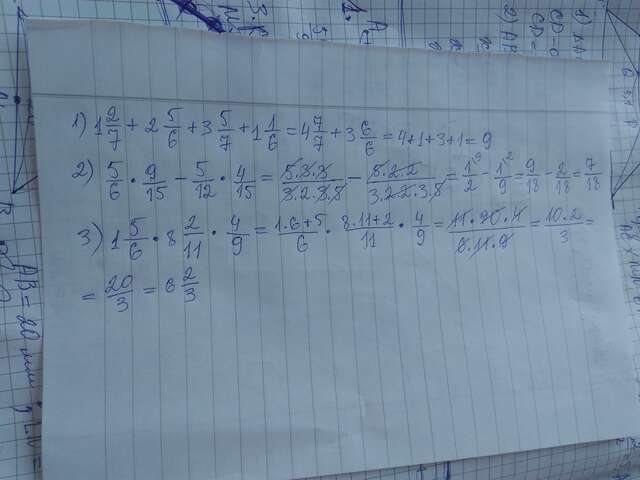 1) 1 2/7 + 2 5/6 + 3 5/7 + 1 1/6 = 4 7/7 + 3 6/6 = 4+1+3+1 = 9
2) 5/6 · 9/15 − 5/12 · 4/15 = 5·3·3/3·2·3·5 − 5·2·2/3·2·2·3·5 = 1/2 ⁹ − 1/9 ² = 9/18 − 2/18 = 7/18
3) 1 5/6 · 8 2/11 · 4/9 = 1·6+5/6 · 8·11+2/11 · 4/9 = 11·90·4/6·11·9 = 10·2/3 =
= 20/3 = 6 2/3
AB = 20